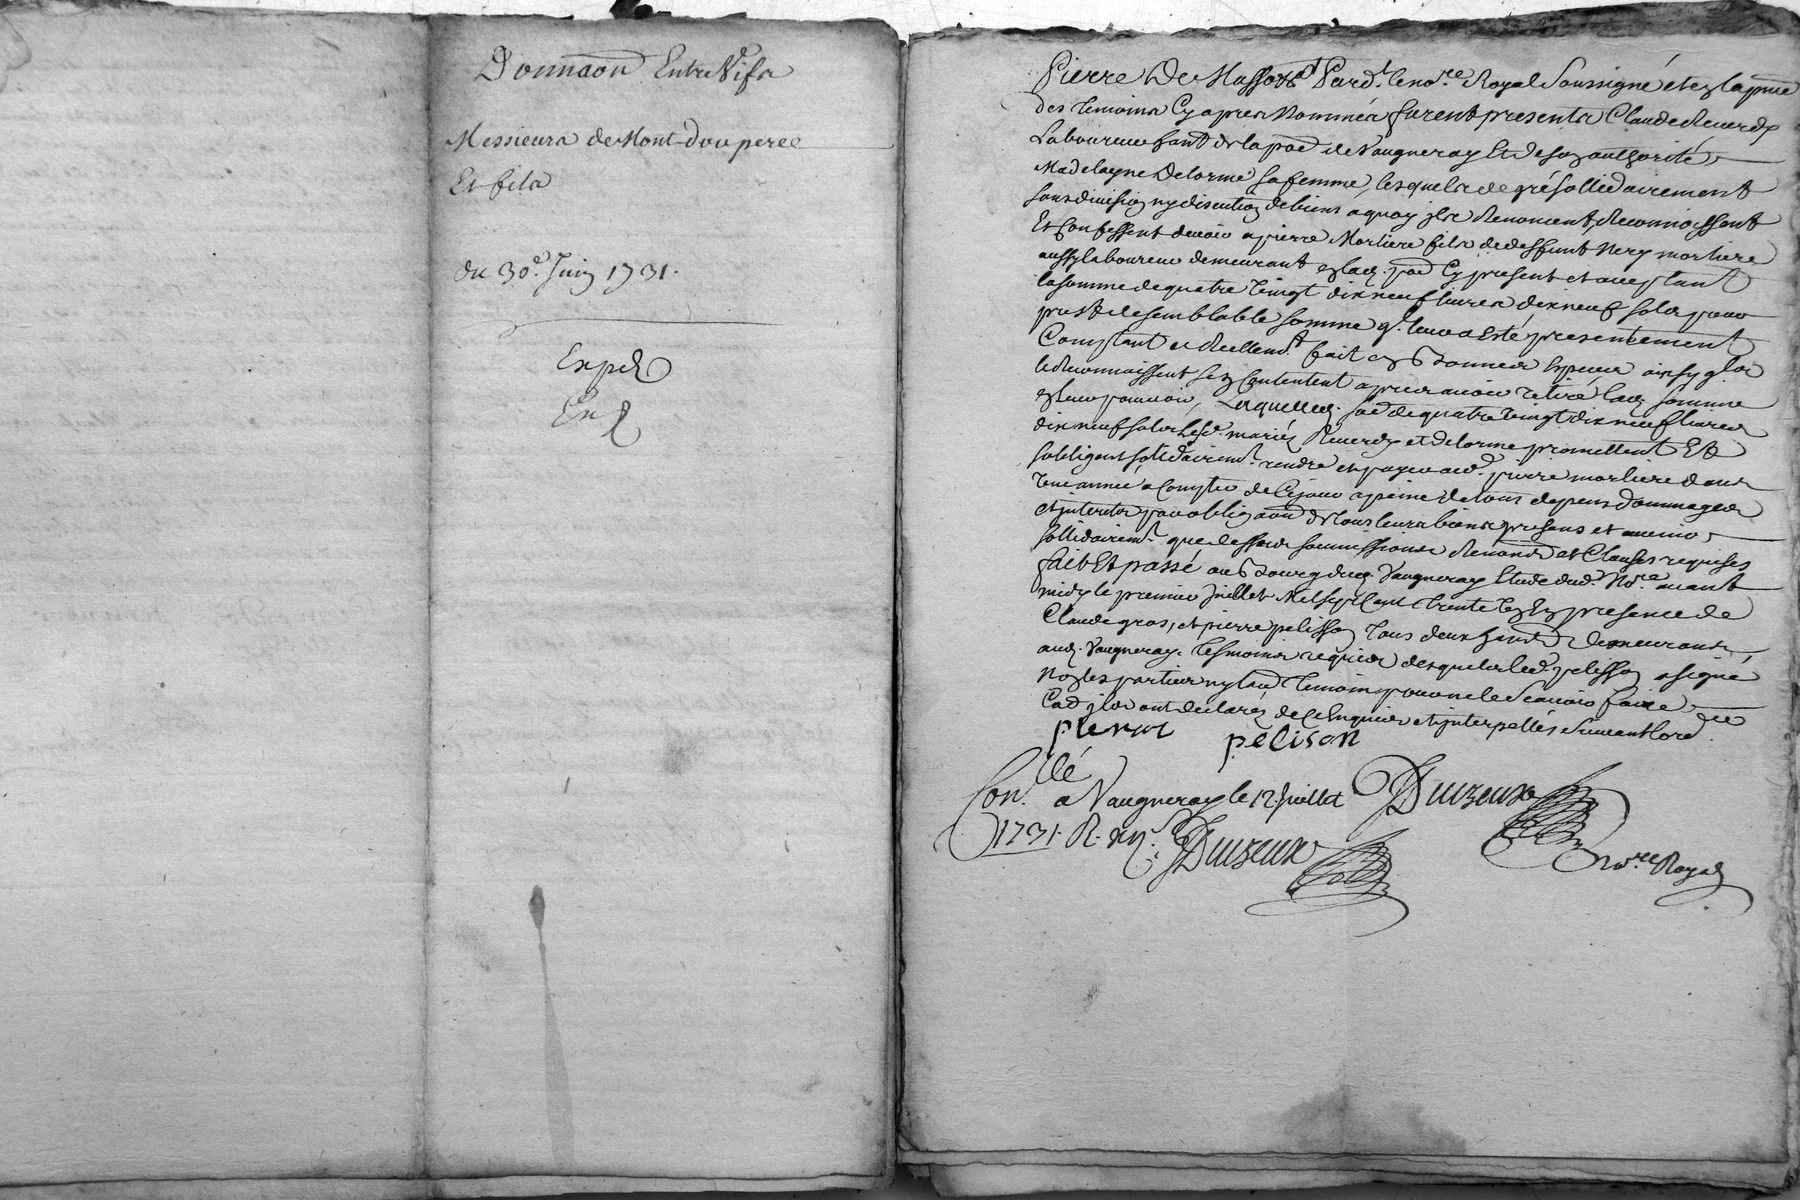 Donnaon Entre Vifs
Messieurs de Mont-D'or pere
Et fils
du 30e. Juin 1731.
Exped
En
Pierre De Masso &c Pard.t le nore. Royal Soussigné et en la pnce
des temoins Cy apres Nommés furent presents Claude Reverdy
Laboureur hant de la psse de Vaugneray Et de son authorité
Madelayne Delorme sa femme, lesquels de gré sollidairement
sans division ny discution de biens a quoy ils Renoncent, Reconnoissent
Et Confessent devoir a pierre Morliere fils de deffunt Nery morliere
aussy laboureur demeurant en lad. psse Cy present et acceptant
la somme de quatre Vingt dix neuf livres dix neuf sols pour
prest de semblable somme q. leur a Esté presentement
Comptant et Reellem.t fait en bonnes Especes ainsy qls
le Reconnaissent s'en Contentent apres avoir retiré lad. somme
en leur pouvoir, Laquelled. soe de quatre Vingt dix neuf livres
dix neuf sols lesd. mariés Reverdy et delorme promettent Et
s'obligent solidairem.t rendre et payer aud. pierre morliere dans
Une année a Compter de Ce jour a peine de tous depens dommages
et interets par obligaon de tous leurs biens presens et avenir
sollidairem.t que dessus soumissions Renonon et Clauses requises
fait Et passé au bourg dud. Vaugneray Etude dud. Nore. avant
midy le premier Juillet Mil sept Cent trente Un En presence de
Claude gros, et pierre pelisson tous deux hants demeurants
aud. Vaugneray. tesmoins requis desquels led. pelisson a signé
Non les parties ny laud temoin pour ne le Scavoir faire
Cod ils ont declarés de Ce Enquis et interpellés Suivant lord.ce
pierre pelison
Con.llé a Vaugneray le 12 Juillet
1731. R. xij s. Duizeux
Duizeux
nore. Royal